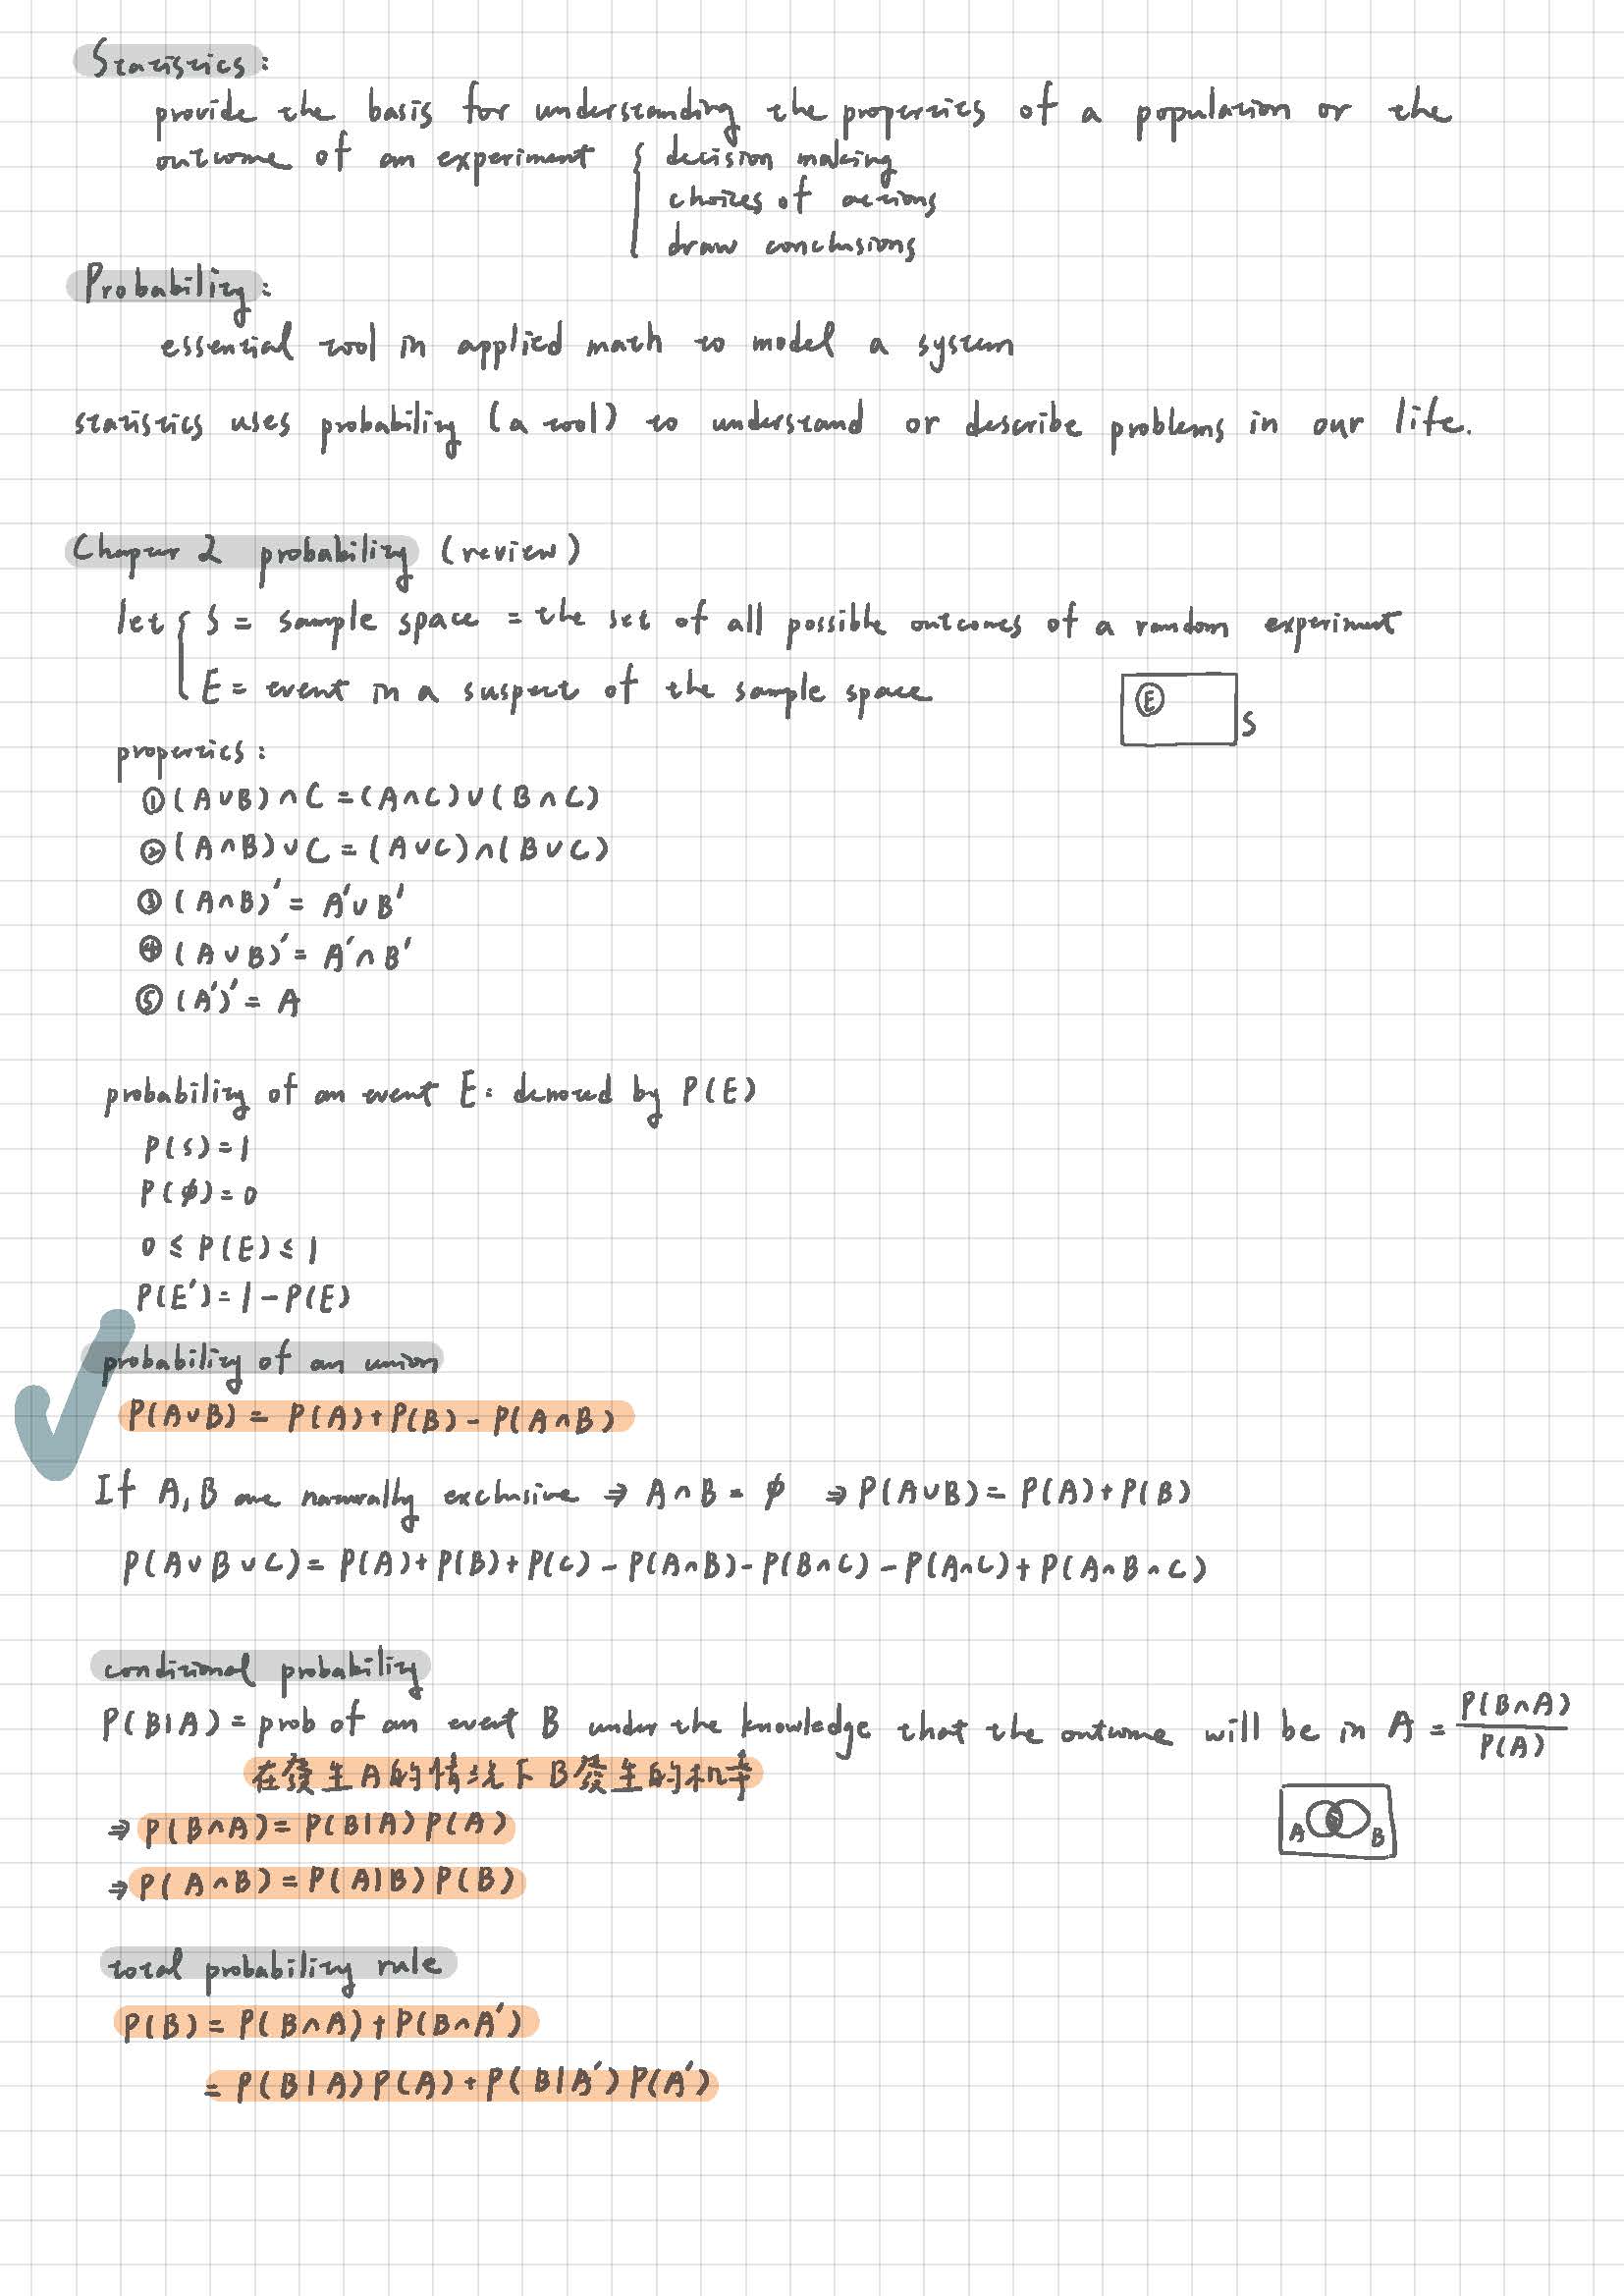 Statistics:
provide the basis for understanding the properties of a population or the
outcome of an experiment { decision making
choices of actions
draw conclusions
Probability:
essential tool in applied math to model a system
statistics uses probability (a tool) to understand or describe problems in our life.
Chapter 2 probability (review)
let { S = sample space = the set of all possible outcomes of a random experiment
E = event in a suspect of the sample space
E
S
properties:
① (A∪B)∩C = (A∩C)∪(B∩C)
② (A∩B)∪C = (A∪C)∩(B∪C)
③ (A∩B)' = A'∪B'
④ (A∪B)' = A'∩B'
⑤ (A')' = A
probability of an event E: denoted by P(E)
P(S)=1
P(∅)=0
0 ≤ P(E) ≤ 1
P(E')=1-P(E)
probability of an union
P(A∪B) = P(A)+P(B)-P(A∩B)
If A,B are naturally exclusive ⇒ A∩B = ∅ ⇒ P(A∪B) = P(A)+P(B)
P(A∪B∪C) = P(A)+P(B)+P(C)-P(A∩B)-P(B∩C)-P(A∩C)+P(A∩B∩C)
conditional probability
P(B|A) = prob of an event B under the knowledge that the outcome will be in A = P(B∩A)/P(A)
在發生A的情況下B發生的机率
A B
⇒ P(B∩A) = P(B|A) P(A)
⇒ P(A∩B) = P(A|B) P(B)
total probability rule
P(B) = P(B∩A)+P(B∩A')
= P(B|A)P(A)+P(B|A')P(A')